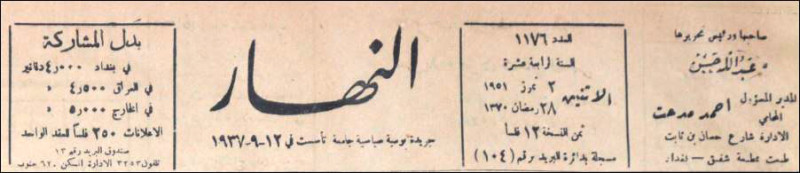 صاحبها ورئيس تحريرها
عبدالله حسين
المدير المسؤول
المحامي
احمد مدحت
الادارة شارع حسان بن ثابت
طبعت بمطبعة شفيق - بغداد
العدد ١١٧٦
السنة الرابعة عشرة
الاثنين
٢ تموز ١٩٥١
٢٨ رمضان ١٣٧٠
ثمن النسخة ١٢ فلساً
مسجلة بدائرة البريد برقم (١٠٤)
النهار
جريدة يومية سياسية جامعة تأسست في ١٢-٩-١٩٣٧
بدل المشاركة
في بغداد ٤٫٠٠٠ دنانير
في العراق ٤٫٥٠٠ »
في الخارج ٥٫٠٠٠ »
الاعلانات ٢٥٠ فلساً للعقد الواحد
صندوق البريد رقم ١٣
تلفون ٣٢٥٣ الادارة السكن ٦٢ جنوب